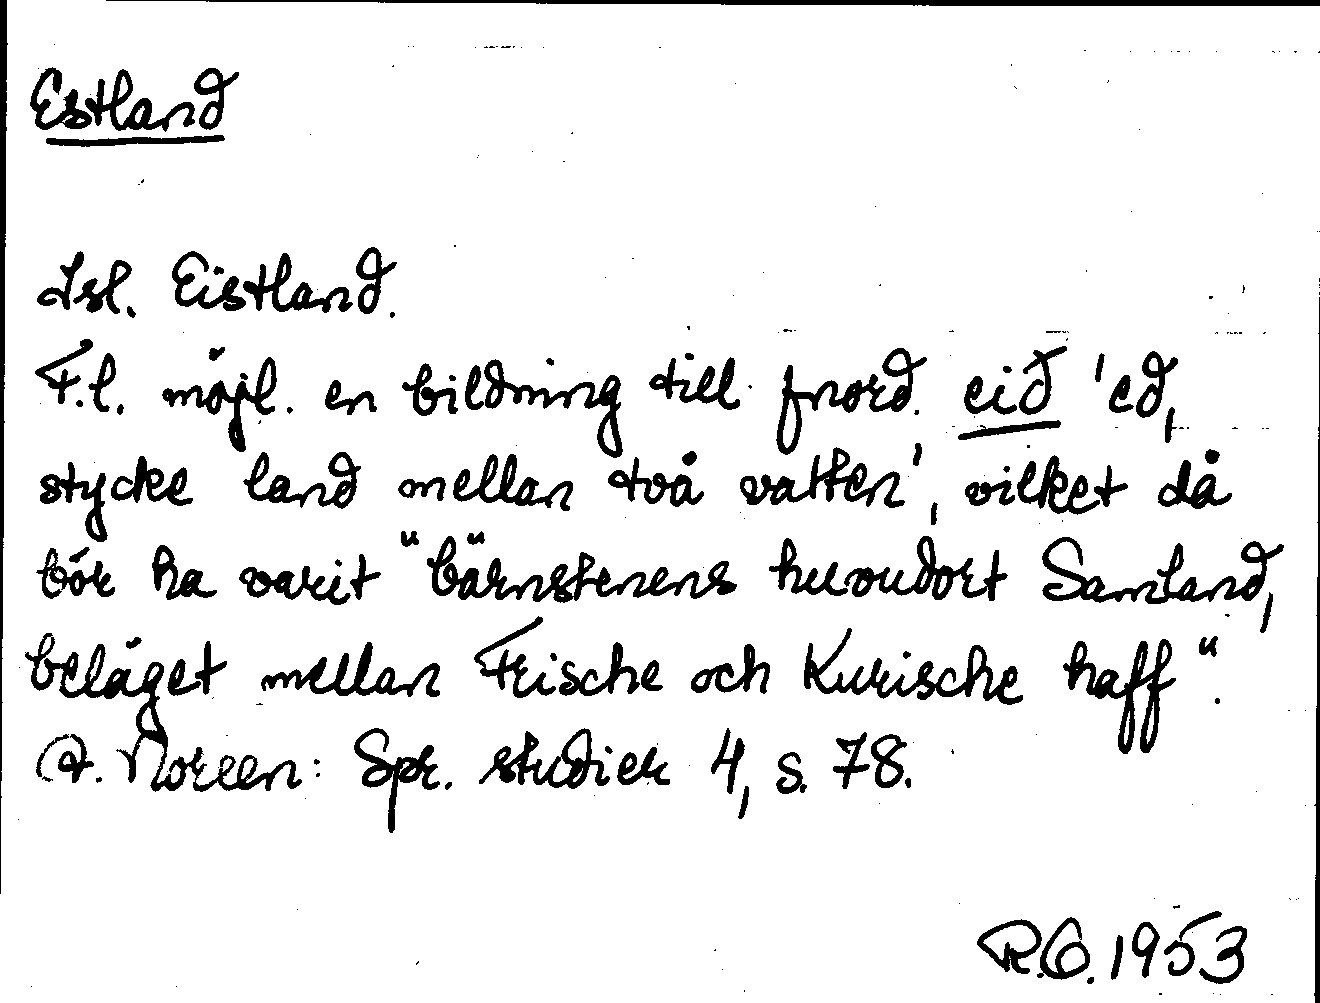 Estland
Isl. Eistland.
F.l. möjl. en bildning till fnord. eið 'ed,
stycke land mellan två vatten', vilket då
bör ha varit "bärnstenens huvudort Samland,
beläget mellan Frische och Kurische haff".
A. Noreen: Spr. studier 4, s. 78.
R.O. 1953